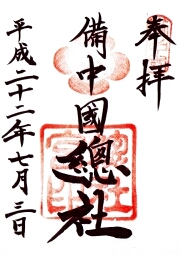 奉拝
備中國總社
平成二十二年七月三日